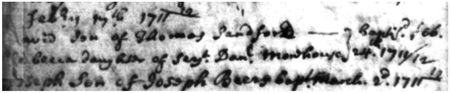 Feb:ry 17th 1711/12
Son of Thomas Sandford — } bapt: Feb.
becca daughter of Serj: Dan: Morehouse } 24: 1711/12
seph Son of Joseph Beers bapt: March 2d. 1711/12